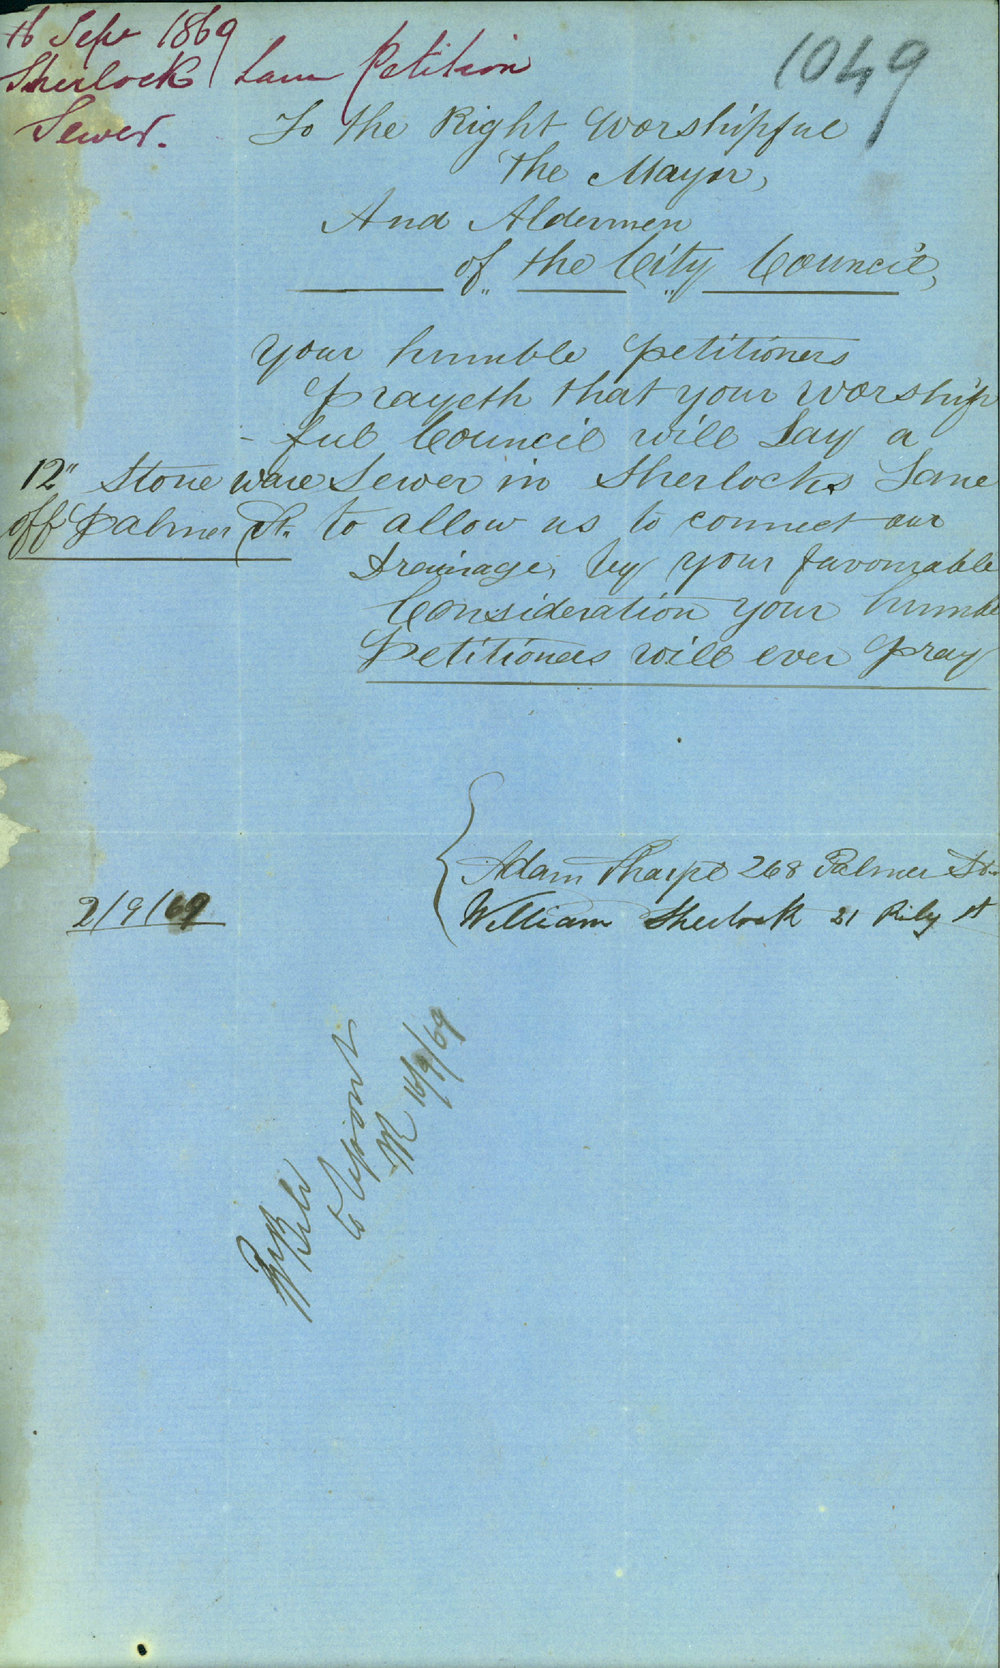 16 Sept 1869
Sherlock Lane Petition
Sewer.
1049
To the Right Worshipful
the Mayor,
And Aldermen
of the City Council,
Your humble petitioners
prayeth that your worship
- ful Council will Lay a
12" Stone ware Sewer in Sherlocks Lane
off Palmer St. to allow us to connect our
Drainage, by your favourable
Consideration your humble
Petitioners will ever pray
Adam Tharpe 268 Palmer St.
2/9/69
William Sherlock 21 Rily st
to report
16/9/69